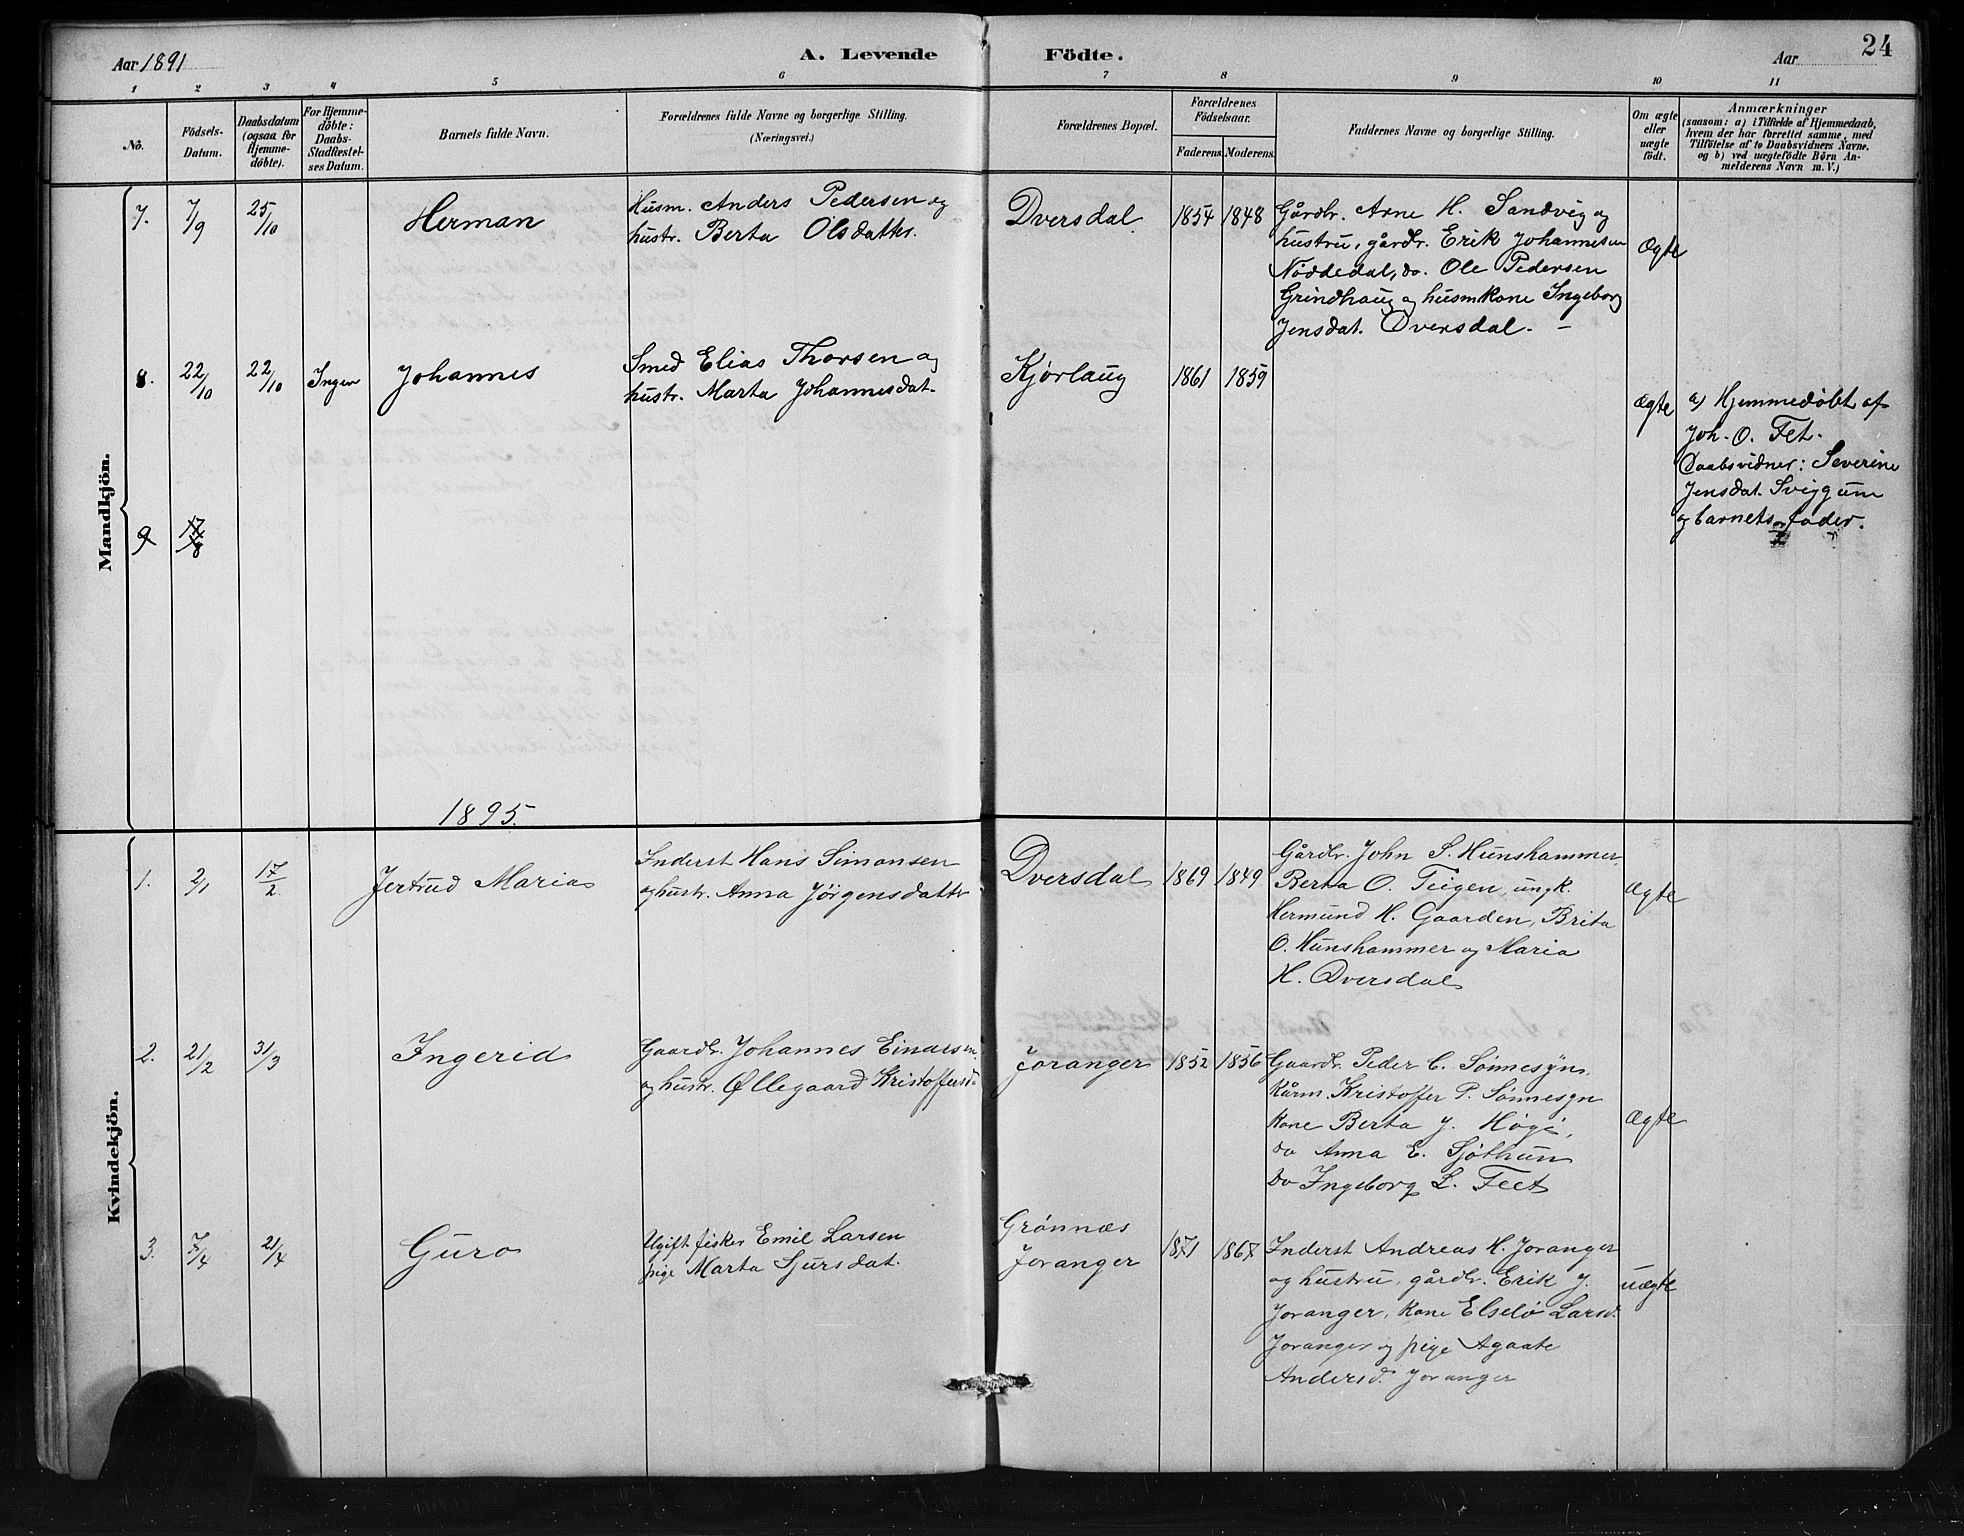 Aar 1891
A. Levende Födte.
Aar
24
1 2 3 4 5 6 7 8 9 10 11
No.
Födsels-
Datum.
Daabsdatum
(ogsaa for
Hjemme-
döbte).
For Hjemme-
döbte:
Daabs-
Stadfæstel-
ses Datum.
Barnets fulde Navn.
Forældrenes fulde Navne og borgerlige Stilling.
(Næringsvei.)
Forældrenes Bopæl.
Forældrenes
Födselsaar.
Faderens.
Moderens.
Faddernes Navne og borgerlige Stilling.
Om ægte
eller
uægte
födt.
Anmærkninger
(saasom: a) i Tilfælde af Hjemmedaab,
hvem der har forrettet samme, med
Tilföielse af to Daabsvidners Navne.
og b) ved uægtefödte Börn An-
melderens Navn m. V.)
Mandkjön.
7. 7/9 25/10 Herman
Husm. Anders Pedersen og
hustr. Berta Olsdatter.
Dversdal 1854 1848
Gårdbr. Arne H. Sandvig og
hustru, gårdbr. Erik Johannesen
Nöddedal, do. Ole Pedersen
Grindhaug og husmkone Ingeborg
Jensdat. Dversdal. –
Ægte
8. 22/10 22/10 Ingen Johannes
Smed Elias Thorsen og
hustr. Marta Johannesdat.
Kjørlaug 1861 1859
Ægte
a) Hjemmedøbt af
Joh. O. Fet.
Daabsvidner: Severine
Jensdat. Sviggum
og barnets fader.
9
1895.
Kvindekjön.
1. 2/1 17/2 Jertrud Maria
Inderst Hans Simonsen
og hustr. Anna Jörgensdatter
Dversdal 1869 1849
Gårdbr. John S. Hunshammer
Berta O. Teigen, ungk.
Hermund H. Gaarden, Brita
O. Hunshammer og Maria
H. Dversdal
Ægte
2. 21/2 31/3 Ingerid
Gaardbr. Johannes Einarsen
og hustr. Øllegaard Kristoffersd.
Joranger 1852 1856
Gaardbr. Peder C. Sønnesyn.
Kårm. Kristoffer P. Sønnesyn
kone Berta J. Høgi,
do Anna E. Sjøthun
do Ingeborg L. Feet
Ægte
3. 7/4 21/4 Guro
Ugift fisker Emil Larsen
pige Marta Sjursdat.
Grønnæs
Joranger 1871 1867
Inderst Andreas H. Joranger
og hustru, gårdbr. Erik J.
Joranger, kone Elselø Larsd.
Joranger og pige Agaate
Andersd. Joranger
uægte